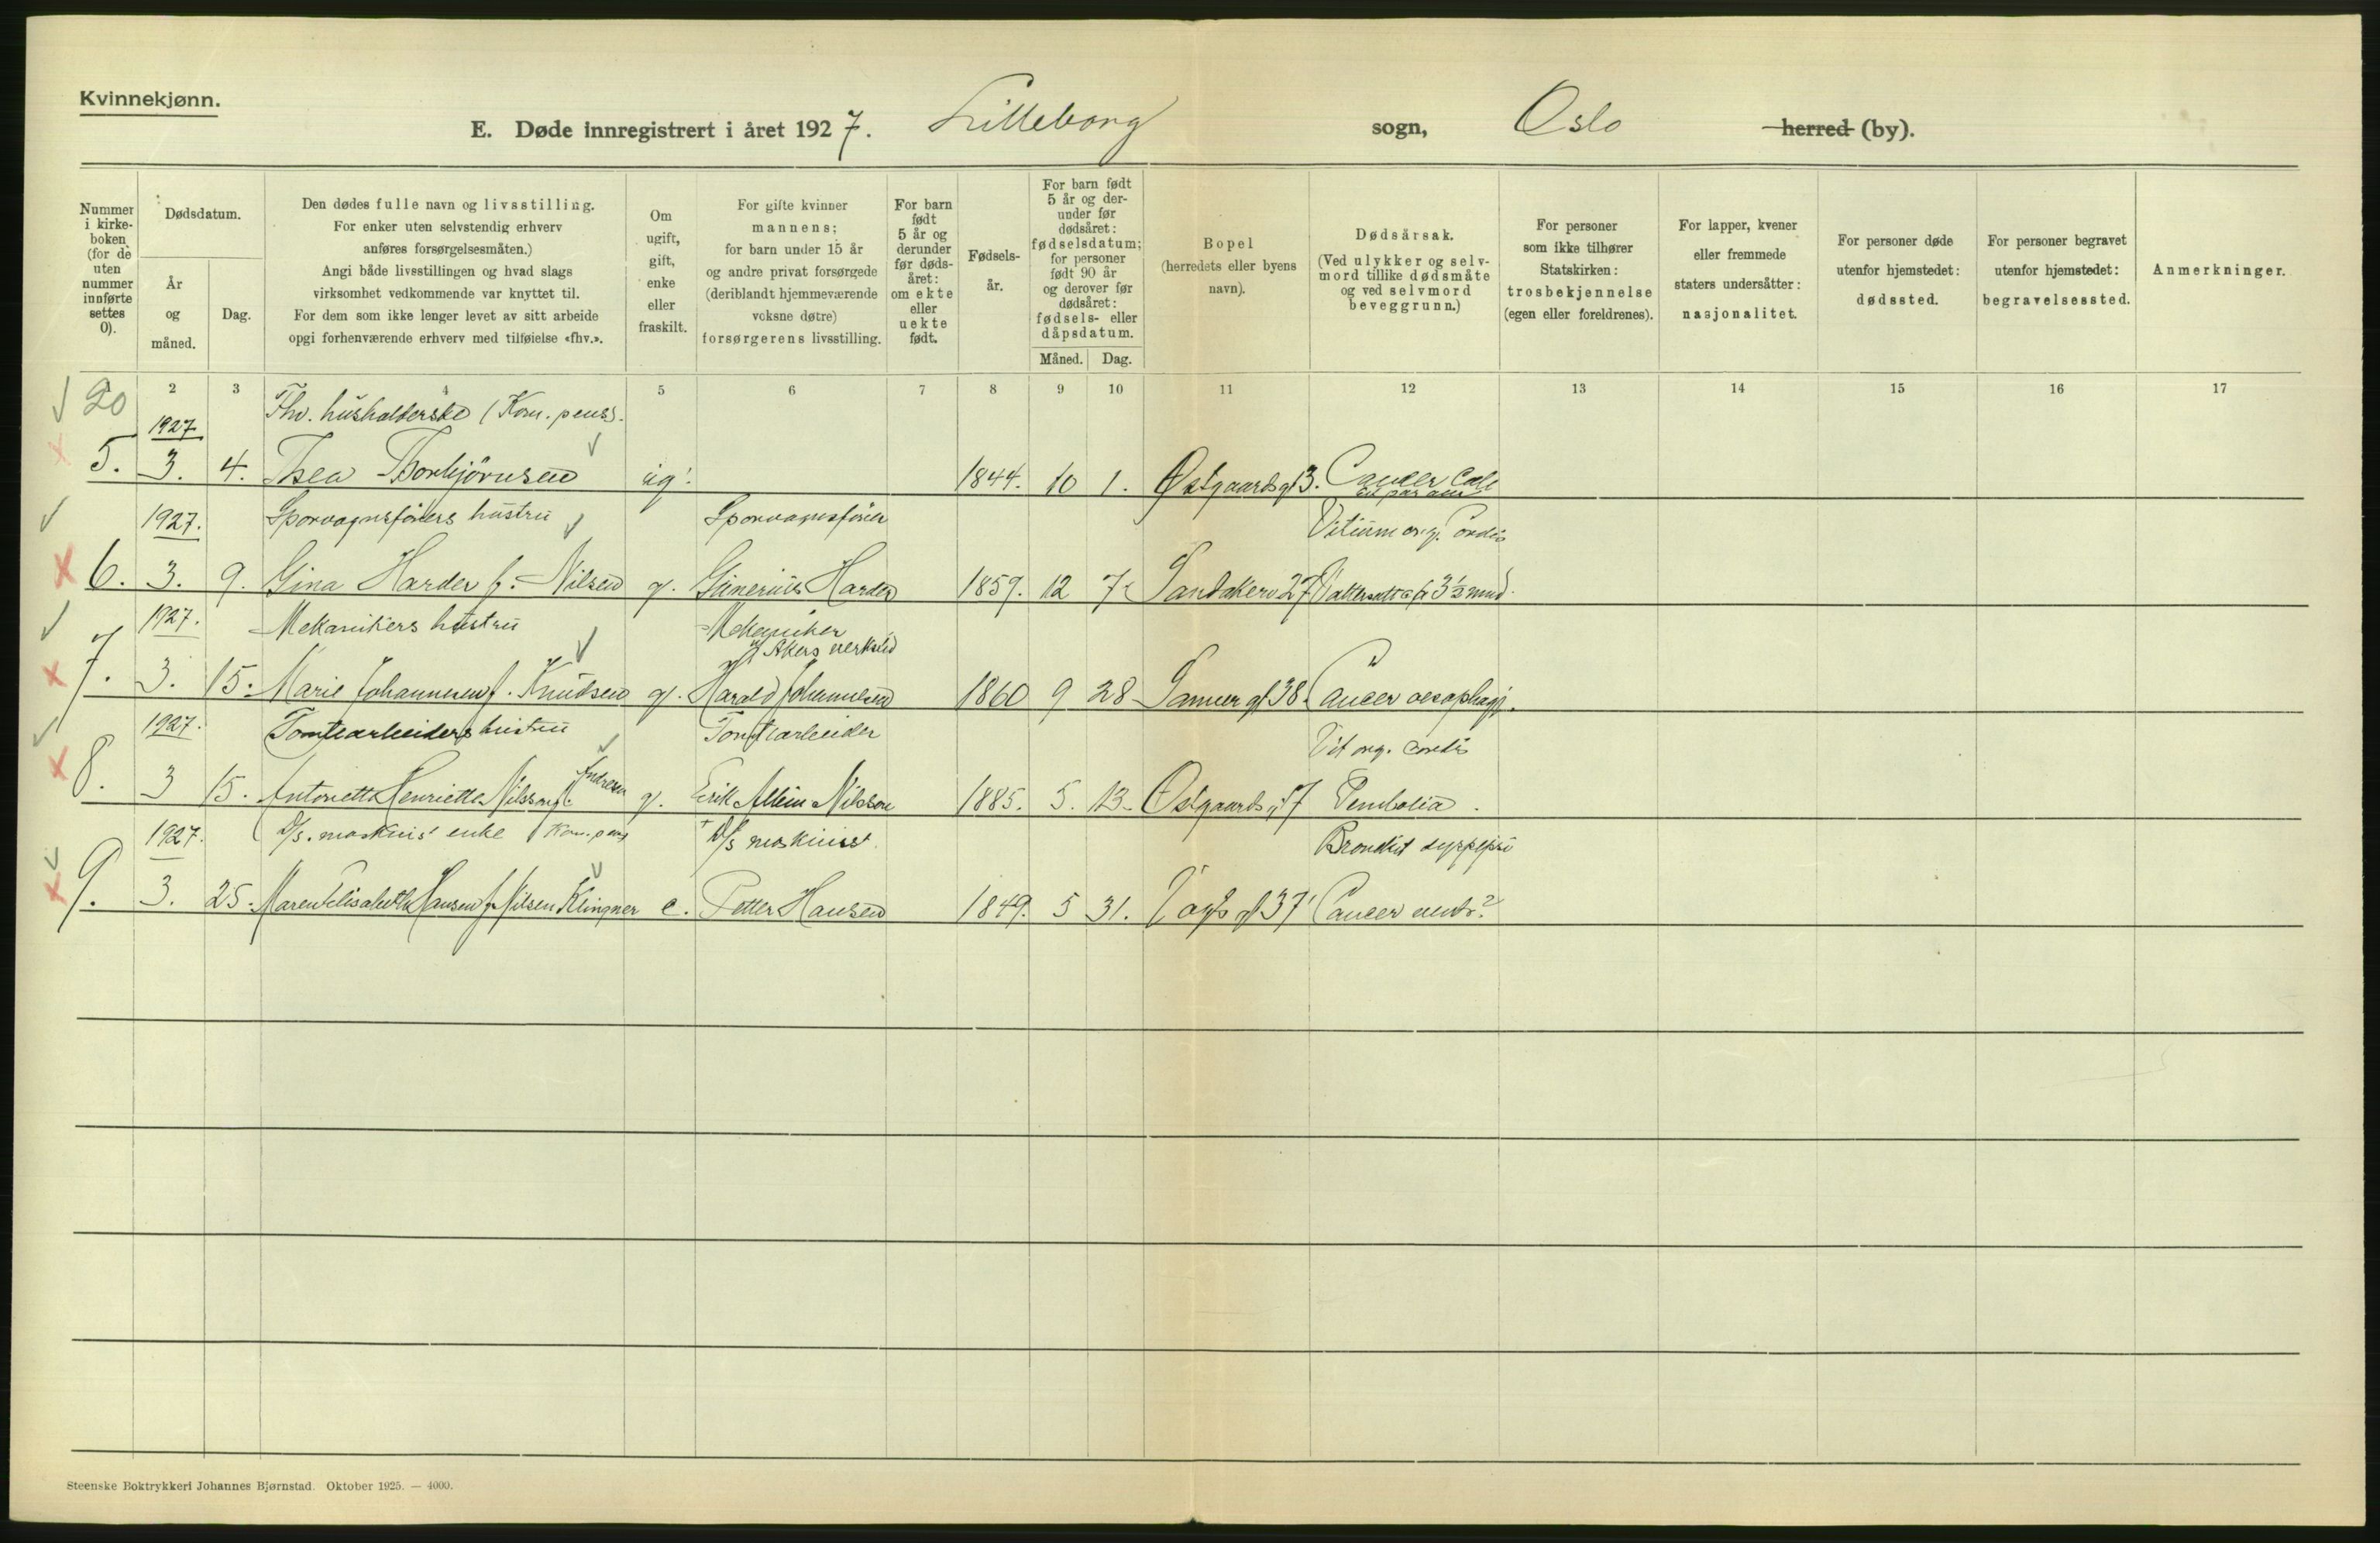 Kvinnekjønn.
E. Døde innregistrert i året 1927. Lilleborg sogn, Oslo herred (by).
Nummer i kirkeboken (for de uten nummer innførte settes 0).
Dødsdatum.
År og måned.
Dag.
Den dødes fulle navn og livsstilling.
For enker uten selvstendig erhverv
anføres forsørgelsesmåten.)
Angi både livsstillingen og hvad slags
virksomhet vedkommende var knyttet til.
For dem som ikke lenger levet av sitt arbeide
opgi forhenværende erhverv med tilføielse «fhv.».
Om ugift, gift, enke eller fraskilt.
For gifte kvinner
mannens;
for barn under 15 år
og andre privat forsørgede
(deriblandt hjemmeværende
voksne døtre)
forsørgerens livsstilling.
For barn født 5 år og derunder før dødsåret: om ekte eller uekte født.
Fødselsår.
For barn født 5 år og derunder før dødsåret: fødselsdatum; for personer født 90 år og derover før dødsåret: fødsels- eller dåpsdatum.
Måned. Dag.
Bopel
(herredets eller byens
navn).
Dødsårsak.
(Ved ulykker og selvmord tillike dødsmåte og ved selvmord beveggrunn.)
For personer
som ikke tilhører
Statskirken:
trosbekjennelse
(egen eller foreldrenes).
For lapper, kvener
eller fremmede
staters undersåtter:
nasjonalitet.
For personer døde
utenfor hjemstedet:
dødssted.
For personer begravet
utenfor hjemstedet:
begravelsessted.
Anmerkninger.
1 2 3 4 5 6 7 8 9 10 11 12 13 14 15 16 17
20
1927 Fhv. husholderske (Kom. pens).
5. 3. 4. Thea Thorbjörnsen ug. 1844. 10 1. Østgaards gt 3. Cancer Coli
1927. Sporvognsförers hustru Sporvognsförer Vitium org. Cordis
6. 3. 9. Gina Harder f. Nilsen g. Gunerius Harder 1859. 12 7 Sandakerv 27 3½ mnd.
1927. Mekanikers hustru Mekaniker
Akers verksted
7. 3. 15. Marie Johannesen f. Knudsen g. Harald Johannesen 1860 9 28 Sanner gt 38. Cancer oesophagi.
1927. Tomtearbeiders hustru Tomtearbeider Vit org. cordis
8. 3 15. Antonette Henriette Nilsson f. Andresen g. Erik Nilsson 1885. 5. 13. Østgaards gt 7 Embolia.
1927. D/s. maskinist enke Kom. pens D/s maskinist. Bronchit
9. 3. 25. Maren Elisabeth Hansen f. Nilsen Klingner e. Petter Hansen 1849. 5 31. Vogts gt 37 Cancer ventr?
Steenske Boktrykkeri Johannes Bjørnstad. Oktober 1925. — 4000.